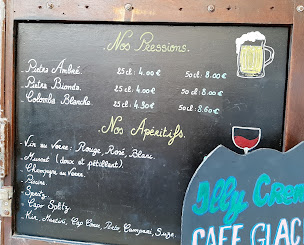 Nos Pressions.
Pietra Ambré. 25 cl: 4.00 € 50 cl: 8.00 €
Pietra Blonde. 25 cl: 4.00 € 50 cl: 8.00 €
Colomba Blanche. 25 cl: 4.30 € 50 cl: 8.60 €
Nos Apéritifs.
Vin au Verre: Rouge, Rosé, Blanc.
Muscat (doux et pétillant).
Champagne au Verre.
Spritz.
Capo Spritz.
Kir, Martini, Cap Corse, Porto, Campari, Suze.
Illy Crem
CAFE GLAC